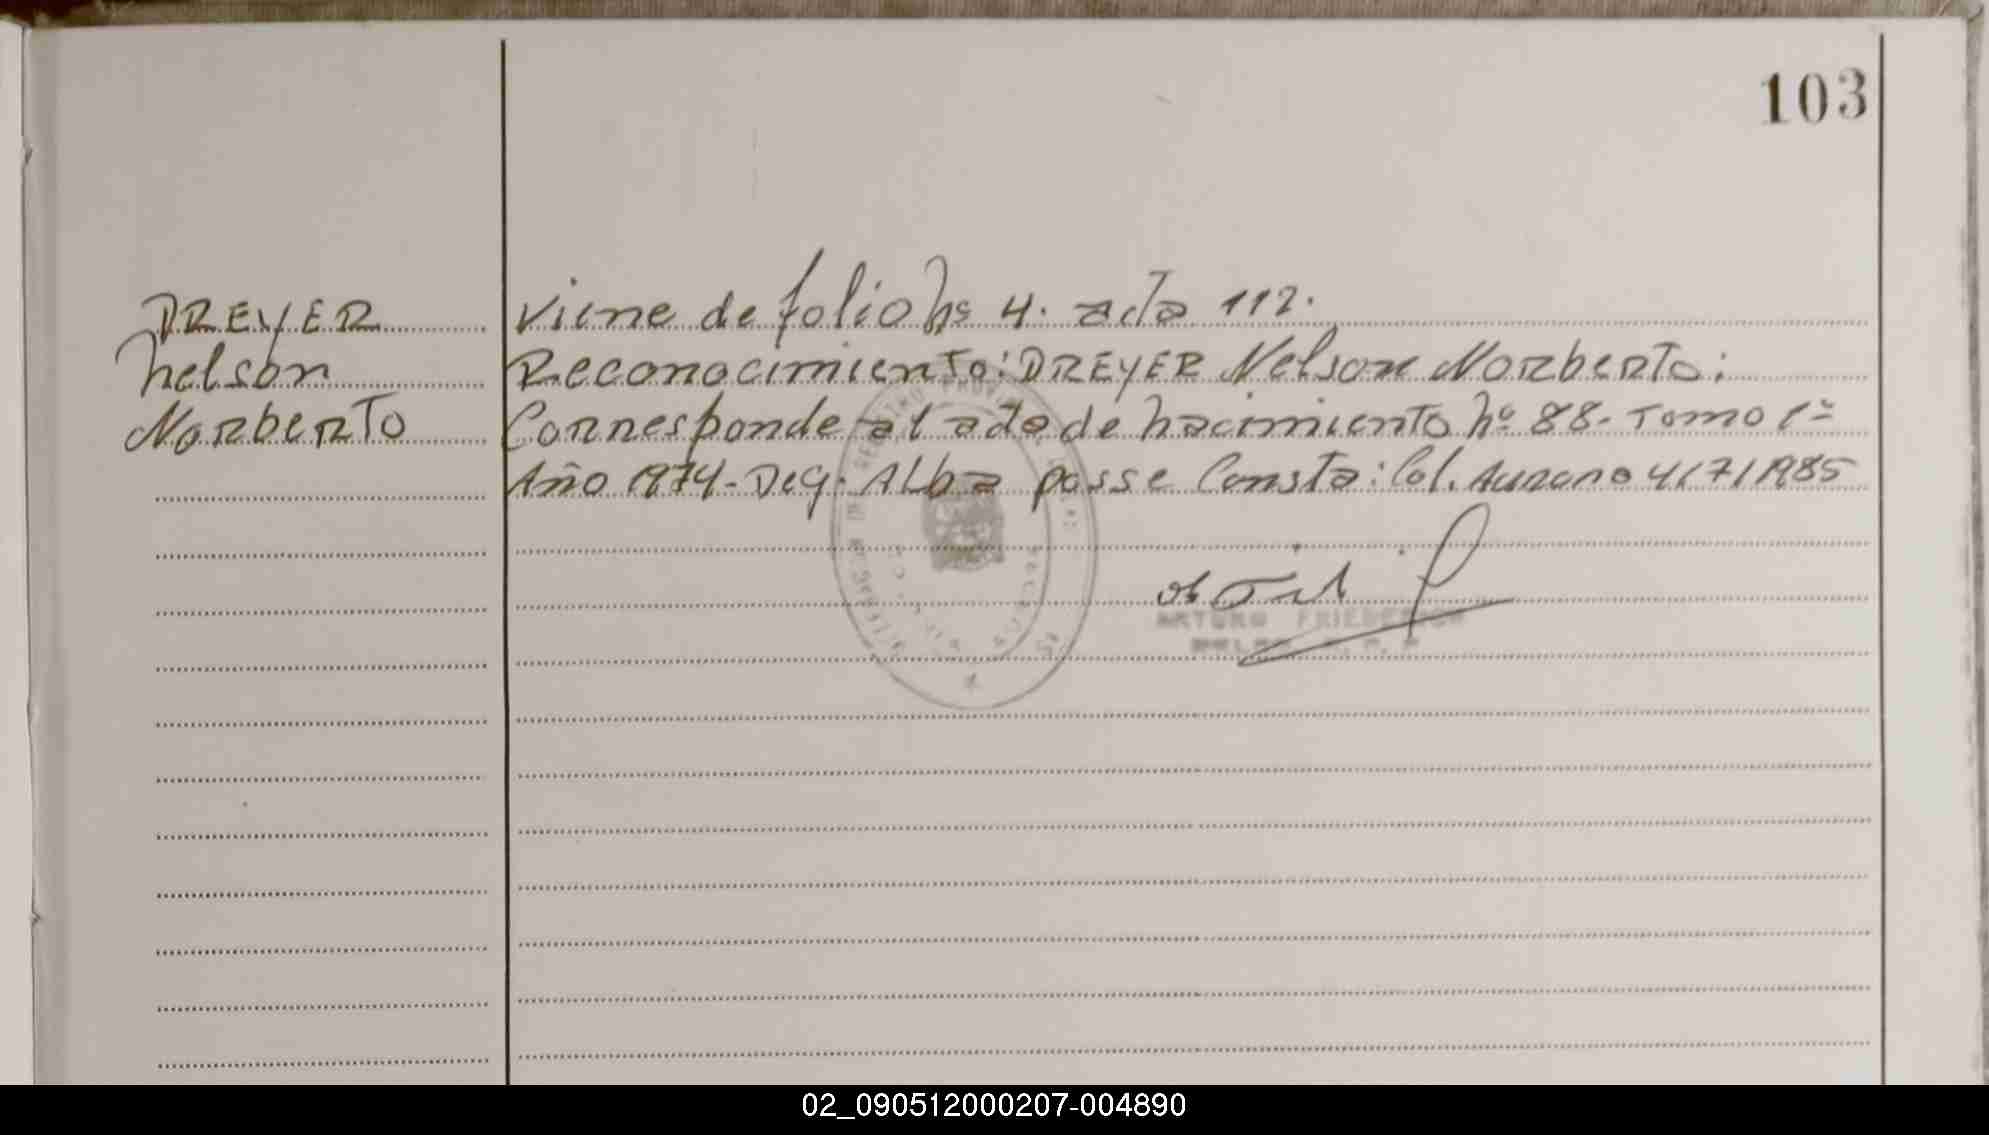 103
DREYER
Nelson
Norberto
Viene de folio nº 4. acta 112.
Reconocimiento: DREYER Nelson Norberto:
Corresponde al acta de nacimiento nº 88- Tomo 1º
Año 1974- Deg. Alba posse Consta: Col. Aurora 4/7/1985
ARTURO FRIEDERICH
02_090512000207-004890